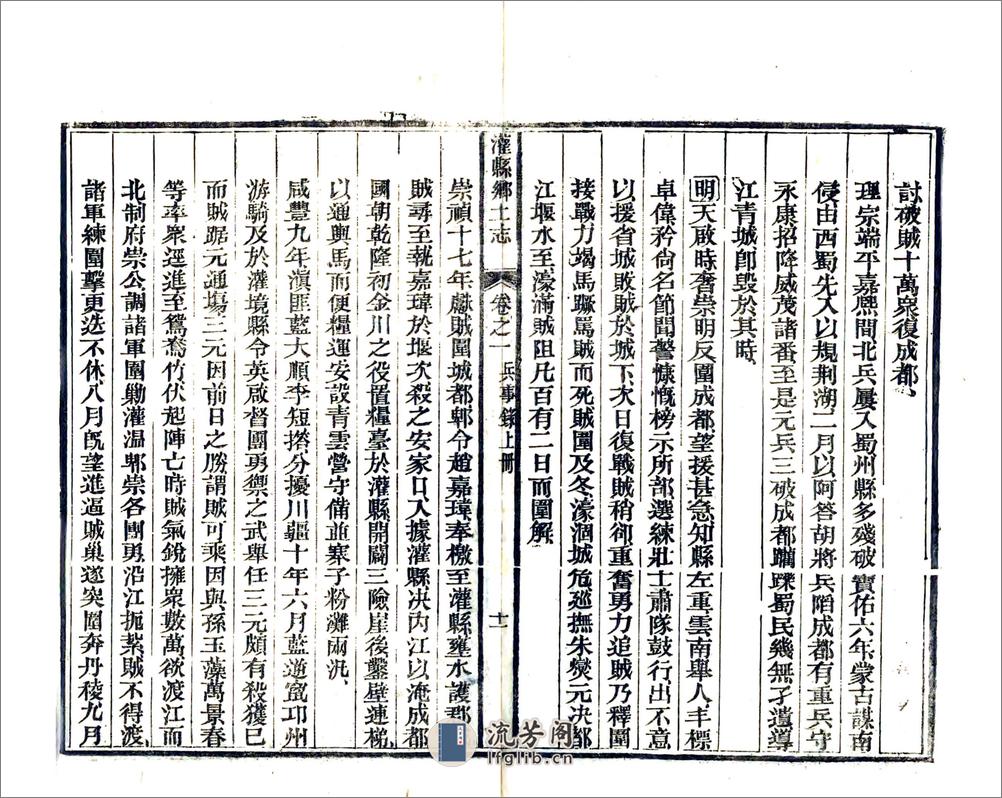 討破賊十萬衆復成都、
理宗端平嘉熙間北兵屢入蜀州縣多殘破寶佑六年蒙古謀南
侵由西蜀先入以規荆湖二月以阿答胡將兵䧟成都有重兵守
永康招降威茂諸番至是元兵三破成都躪蹂蜀民幾無孑遺導
江青城卽毀於其時、
明天啟時奢崇明反圍成都望援甚急知縣左重雲南舉人丰標
卓偉矜尙名節聞警慷慨榜示所部選練壯士肅隊鼓行出不意
以援省城敗賊於城下次日復戰賊稍卻重奮勇力追賊乃釋圍
接戰力竭馬蹶罵賊而死賊圍及冬濠涸城危廵撫朱燮元決都
江堰水至濠滿賊阻凡百有二日而圍解
灌縣鄉土志 卷之一 兵事錄上冊 十一
崇禎十七年獻賊圍城都郫令趙嘉瑋奉檄至灌縣壅水護郡
賊尋至執嘉瑋於堰次殺之安家口入據灌縣决內江以淹成都
國朝乾隆初金川之役置糧臺於灌縣開闢三險崖後鑿壁連梯
以通輿馬而便糧運安設青雲營守備並寨子粉灘兩汛、
咸豐九年滇匪藍大順李短搭分擾川疆十年六月藍道富邛州
游騎及於灌境縣令英啟督團勇禦之武舉任三元頗有殺獲已
而賊踞元通塲三元因前日之勝謂賊可乘因與孫玉藻萬景春
等率衆逕進至鴛鴦竹伏起陣亡時賊氣銳擁衆數萬欲渡江而
北制府崇公調諸軍團勦灌温郫崇各團勇沿江扼紮賊不得渡、
諸軍練團擊更迭不休八月旣望進逼賊巢遂突圍奔丹稜九月
流芳阁
lfglib.cn